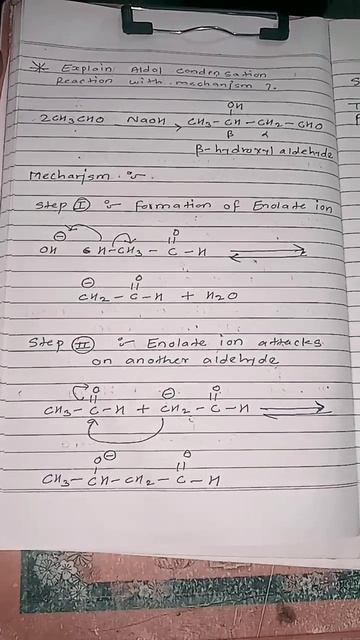 * Explain Aldol condensation
Reaction with mechanism ?.
OH
2CH3CHO NaOH → CH3-CH-CH2-CHO
β α
β-hydroxyl aldehyde
Mechanism :-
Step I :- Formation of Enolate ion
⊖ O
OH H-CH3-C-H ⇌
⊖ O
CH2-C-H + H2O
Step II :- Enolate ion attacks
on another aldehyde
O ⊖ O
CH3-C-H + CH2-C-H ⇌
O⊖ O
CH3-CH-CH2-C-H